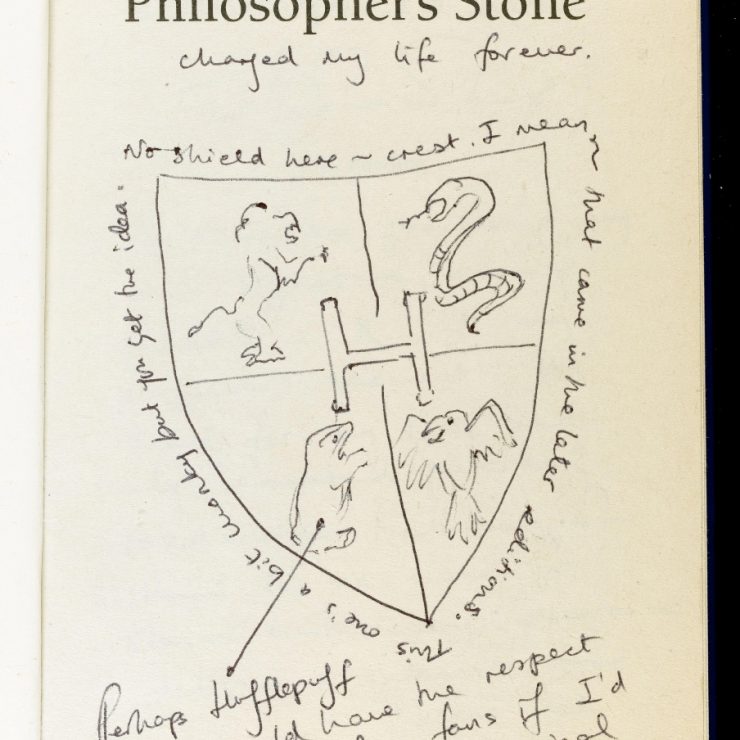 Philosopher's Stone
changed my life forever.
No shield here ~ crest. I mean
that came in the later editions.
This one's a bit wonky but you get the idea.
H
Perhaps Hufflepuff
have the respect
fans if I'd